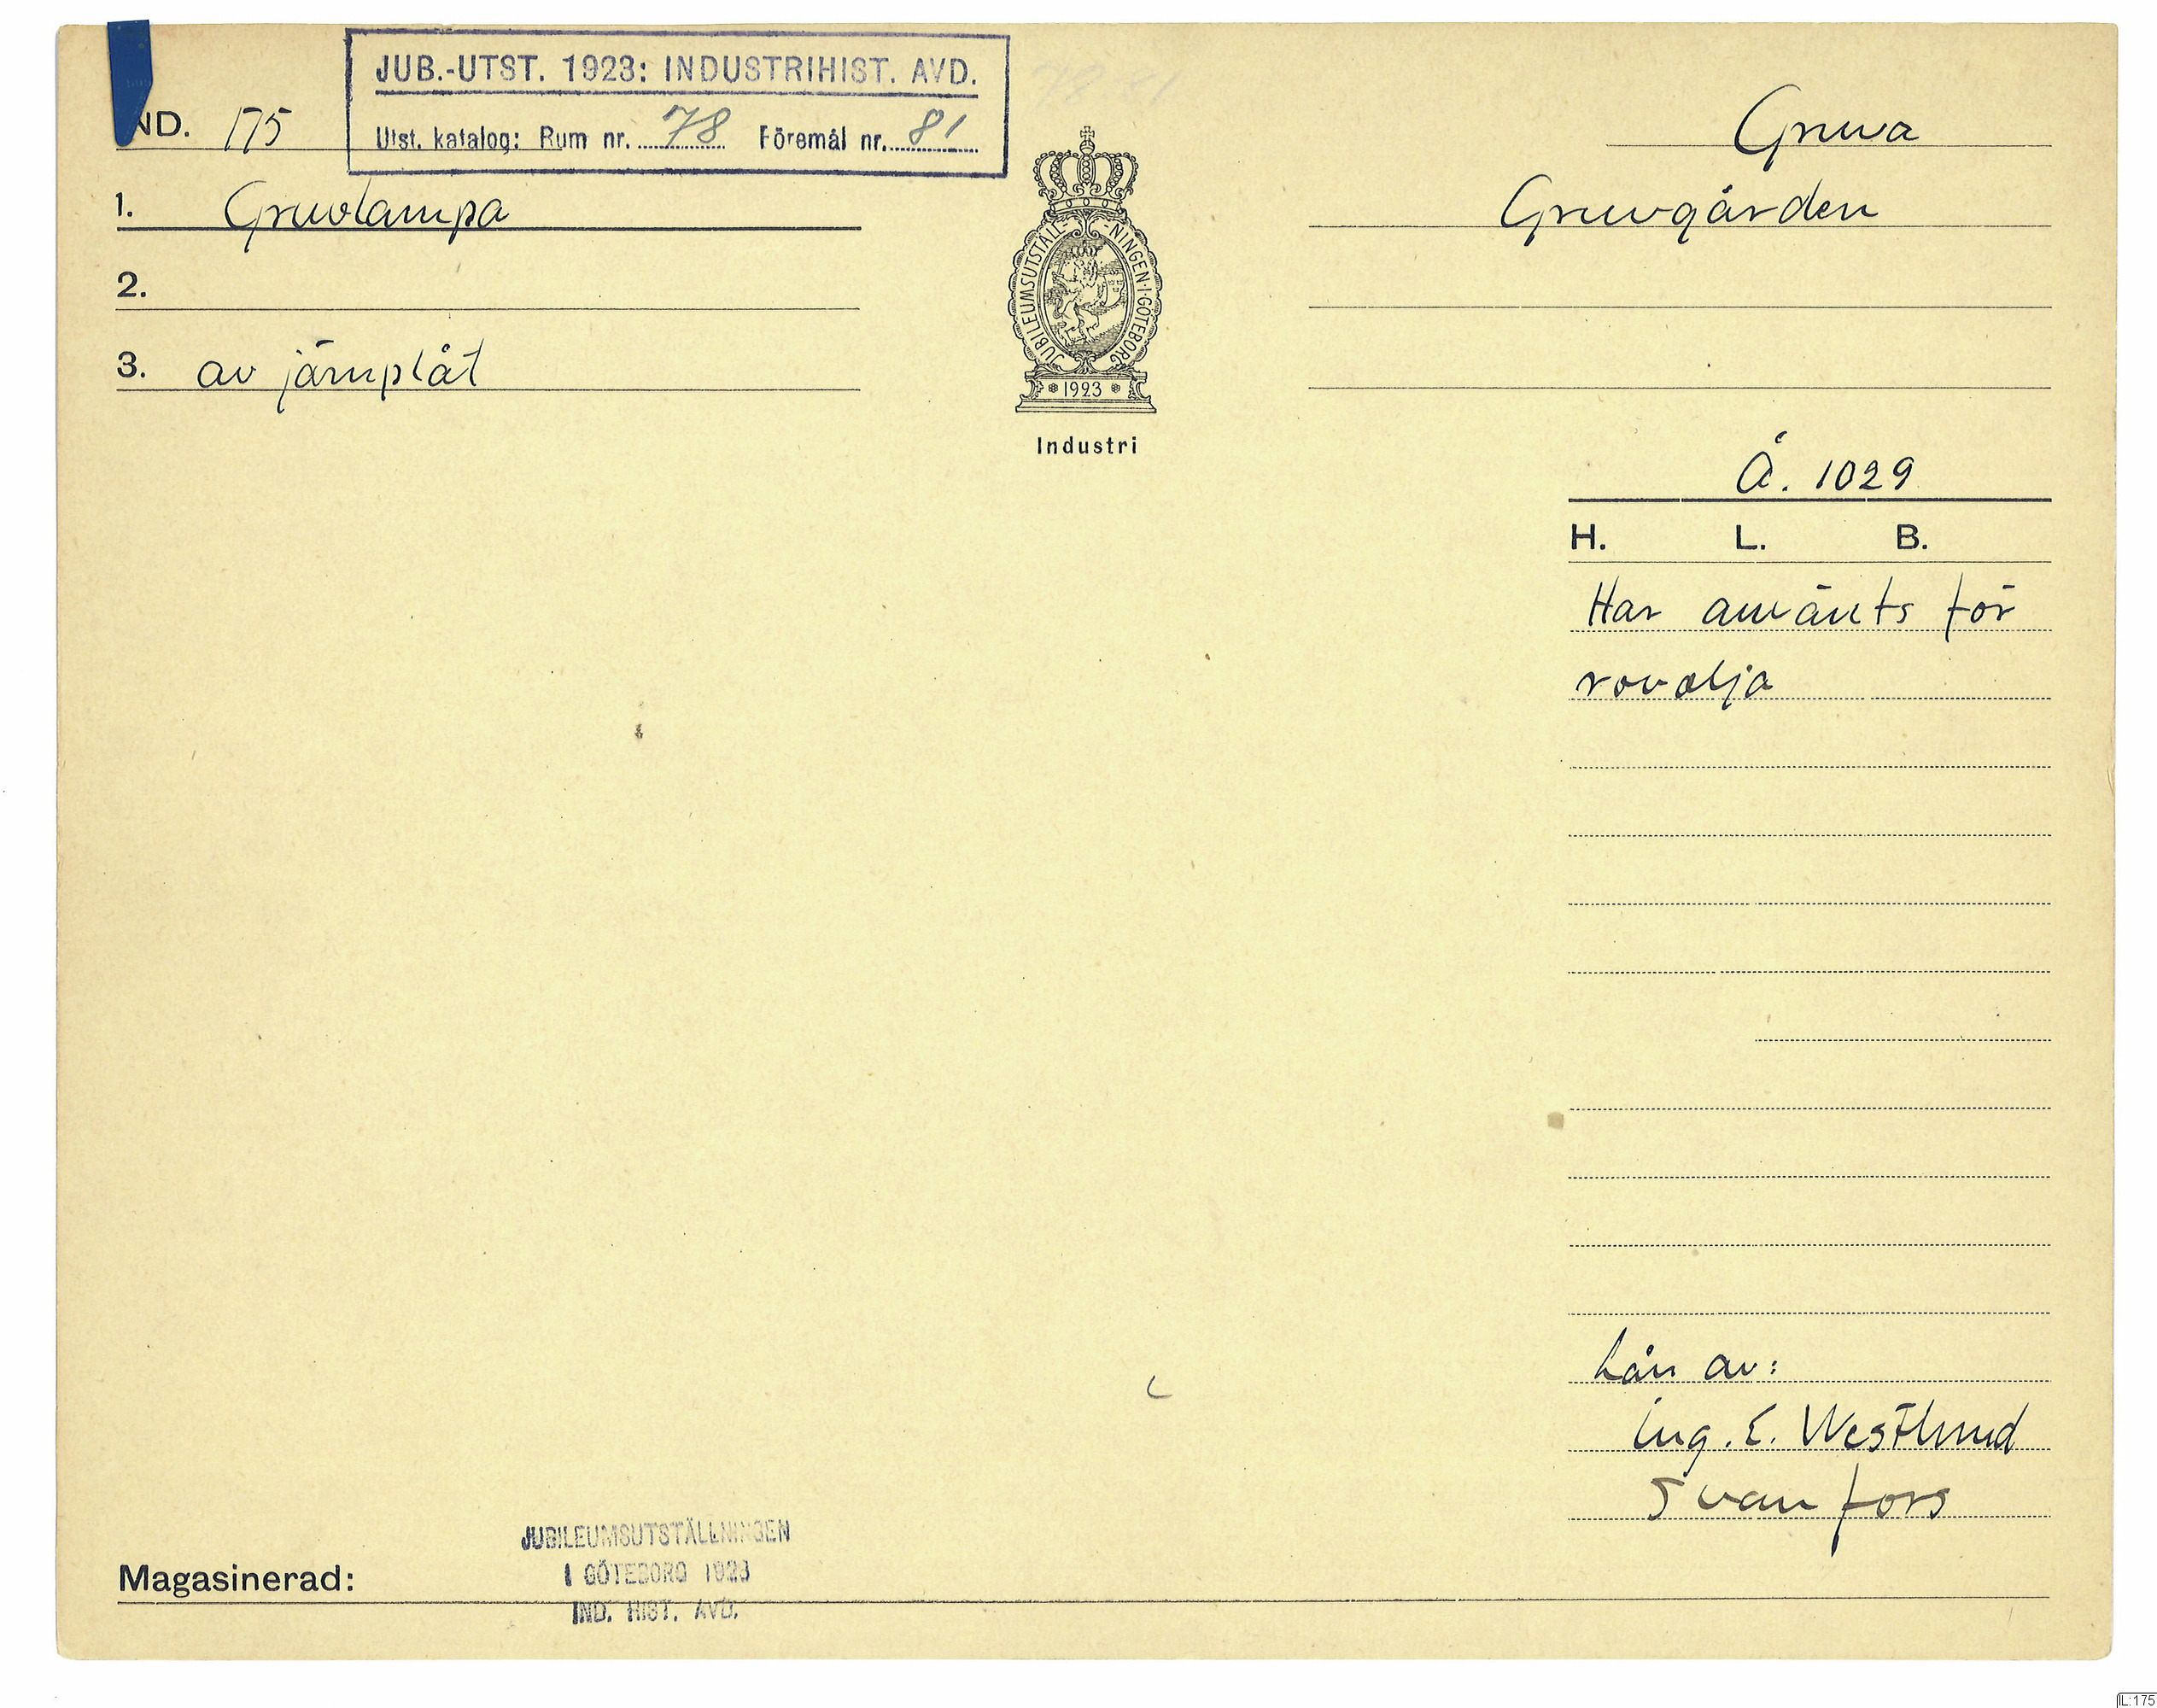 JUB.-UTST. 1923: INDUSTRIHIST. AVD.
Utst. katalog: Rum nr. 78 Föremål nr. 81
IND. 175
Gruva
1. Gruvlampa
Gruvgården
2.
3. av järnplåt
JUBILEUMSUTSTÄLL-NINGEN·I·GÖTEBORG
1923
Industri
Å. 1029
H. L. B.
Har använts för
rovolja
Lån av:
Ing. E. Westlund
Svanfors
JUBILEUMSUTSTÄLLNINGEN
I GÖTEBORG 1923
IND. HIST. AVD.
Magasinerad:
IL:175